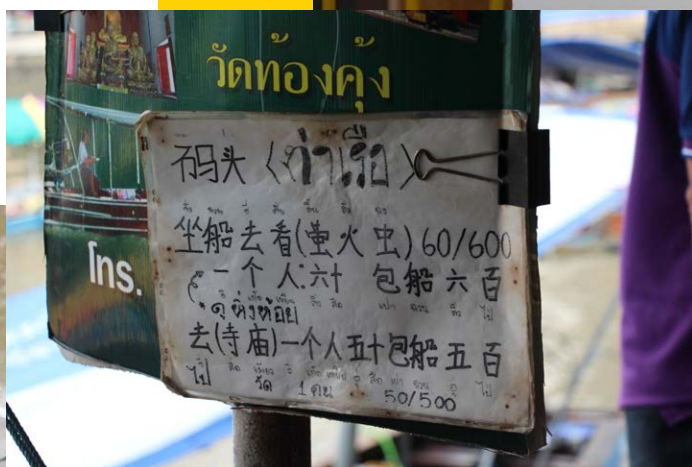 วัดท้องคุ้ง
โทร.
码头 〈ท่าเรือ〉
坐船去看(萤火虫) 60/600
一个人:六十 包船六百
* ดูหิ่งห้อย
去(寺庙)一个人五十包船五百
ไป วัด 1 คน
50/500